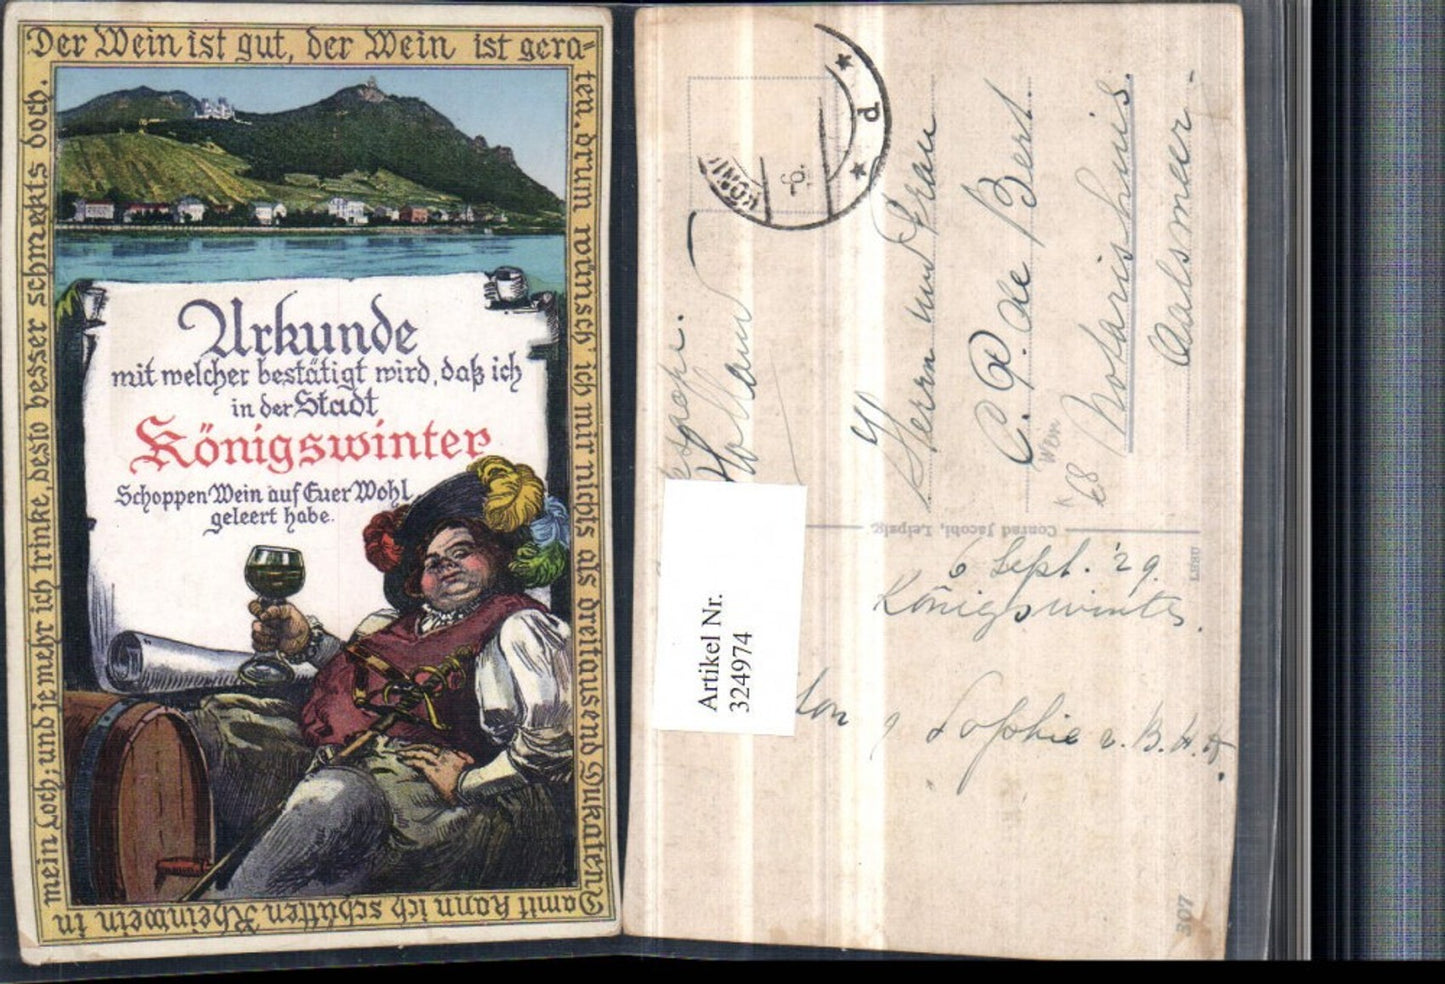 Der Wein ist gut, der Wein ist gera=
ten, drum wünsch' ich mir nichts als dreitausend Dukaten
Damit kann ich schütten Rheinwein in
mein Loch; und je mehr ich trinke, desto besser schmekts doch.
Urkunde
mit welcher bestätigt wird, daß ich
in der Stadt
Königswinter
Schoppen Wein auf Euer Wohl
geleert habe.
d
KÖNI
Herrn und Frau
C. P. de Bert.
68
Notarishuis.
Aalsmeer -
Holland
Conrad Jacobi, Leipzig.
Artikel Nr.
324974
6 Sept. '29.
Königswinter.
Sophie v. B.
307